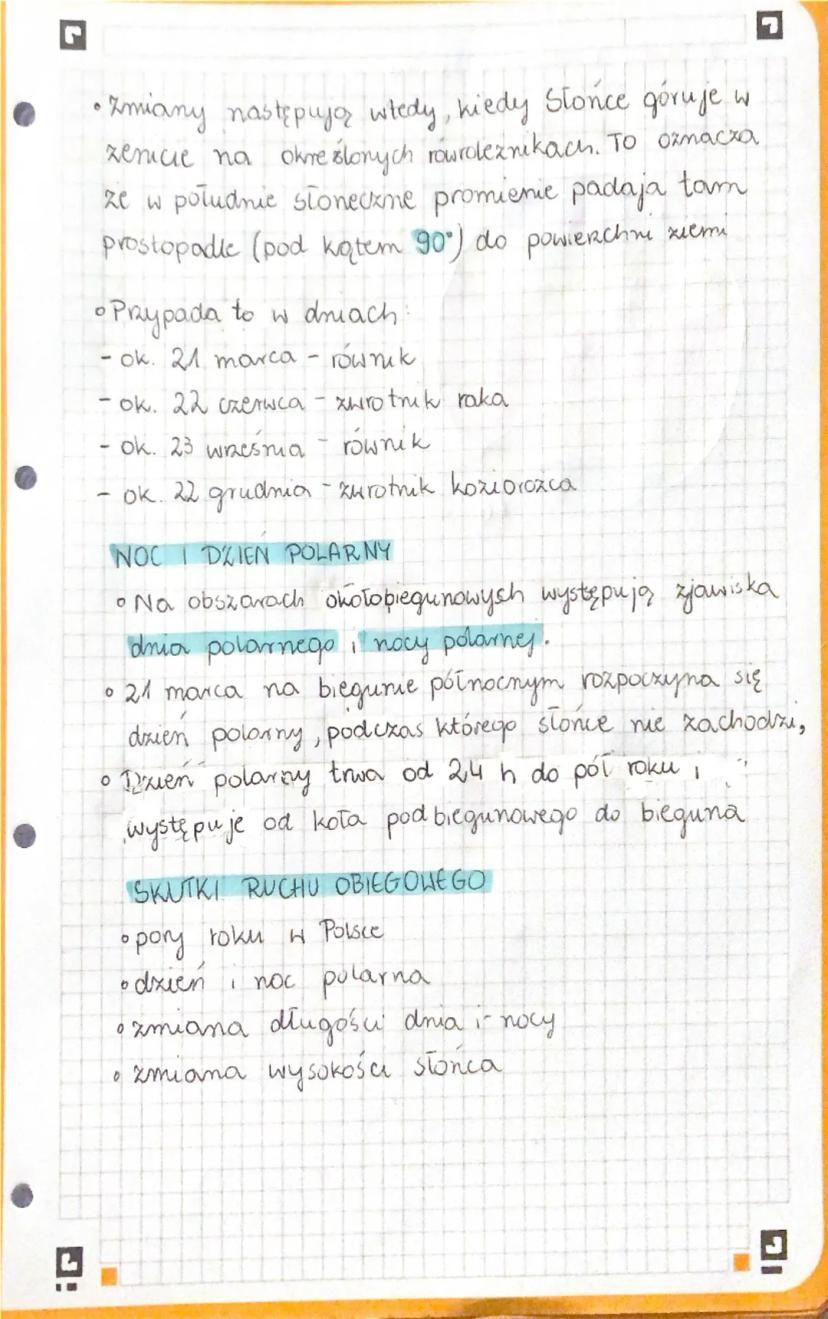 • Zmiany następują wtedy, kiedy Słońce góruje w
zenicie na określonych równoleżnikach. To oznacza
że w południe słoneczne promienie padają tam
prostopadle (pod kątem 90°) do powierzchni ziemi
• Przypada to w dniach:
- ok. 21 marca - równik
- ok. 22 czerwca - zwrotnik raka
- ok. 23 września - równik
- ok. 22 grudnia - zwrotnik koziorożca
NOC I DZIEŃ POLARNY
• Na obszarach okołobiegunowych występują zjawiska
dnia polarnego i nocy polarnej.
• 21 marca na biegunie północnym rozpoczyna się
dzień polarny, podczas którego słońce nie zachodzi,
• Dzień polarny trwa od 24 h do pół roku i
występuje od koła podbiegunowego do bieguna
SKUTKI RUCHU OBIEGOWEGO
• pory roku w Polsce
• dzień i noc polarna
• zmiana długości dnia i nocy
• zmiana wysokości słońca